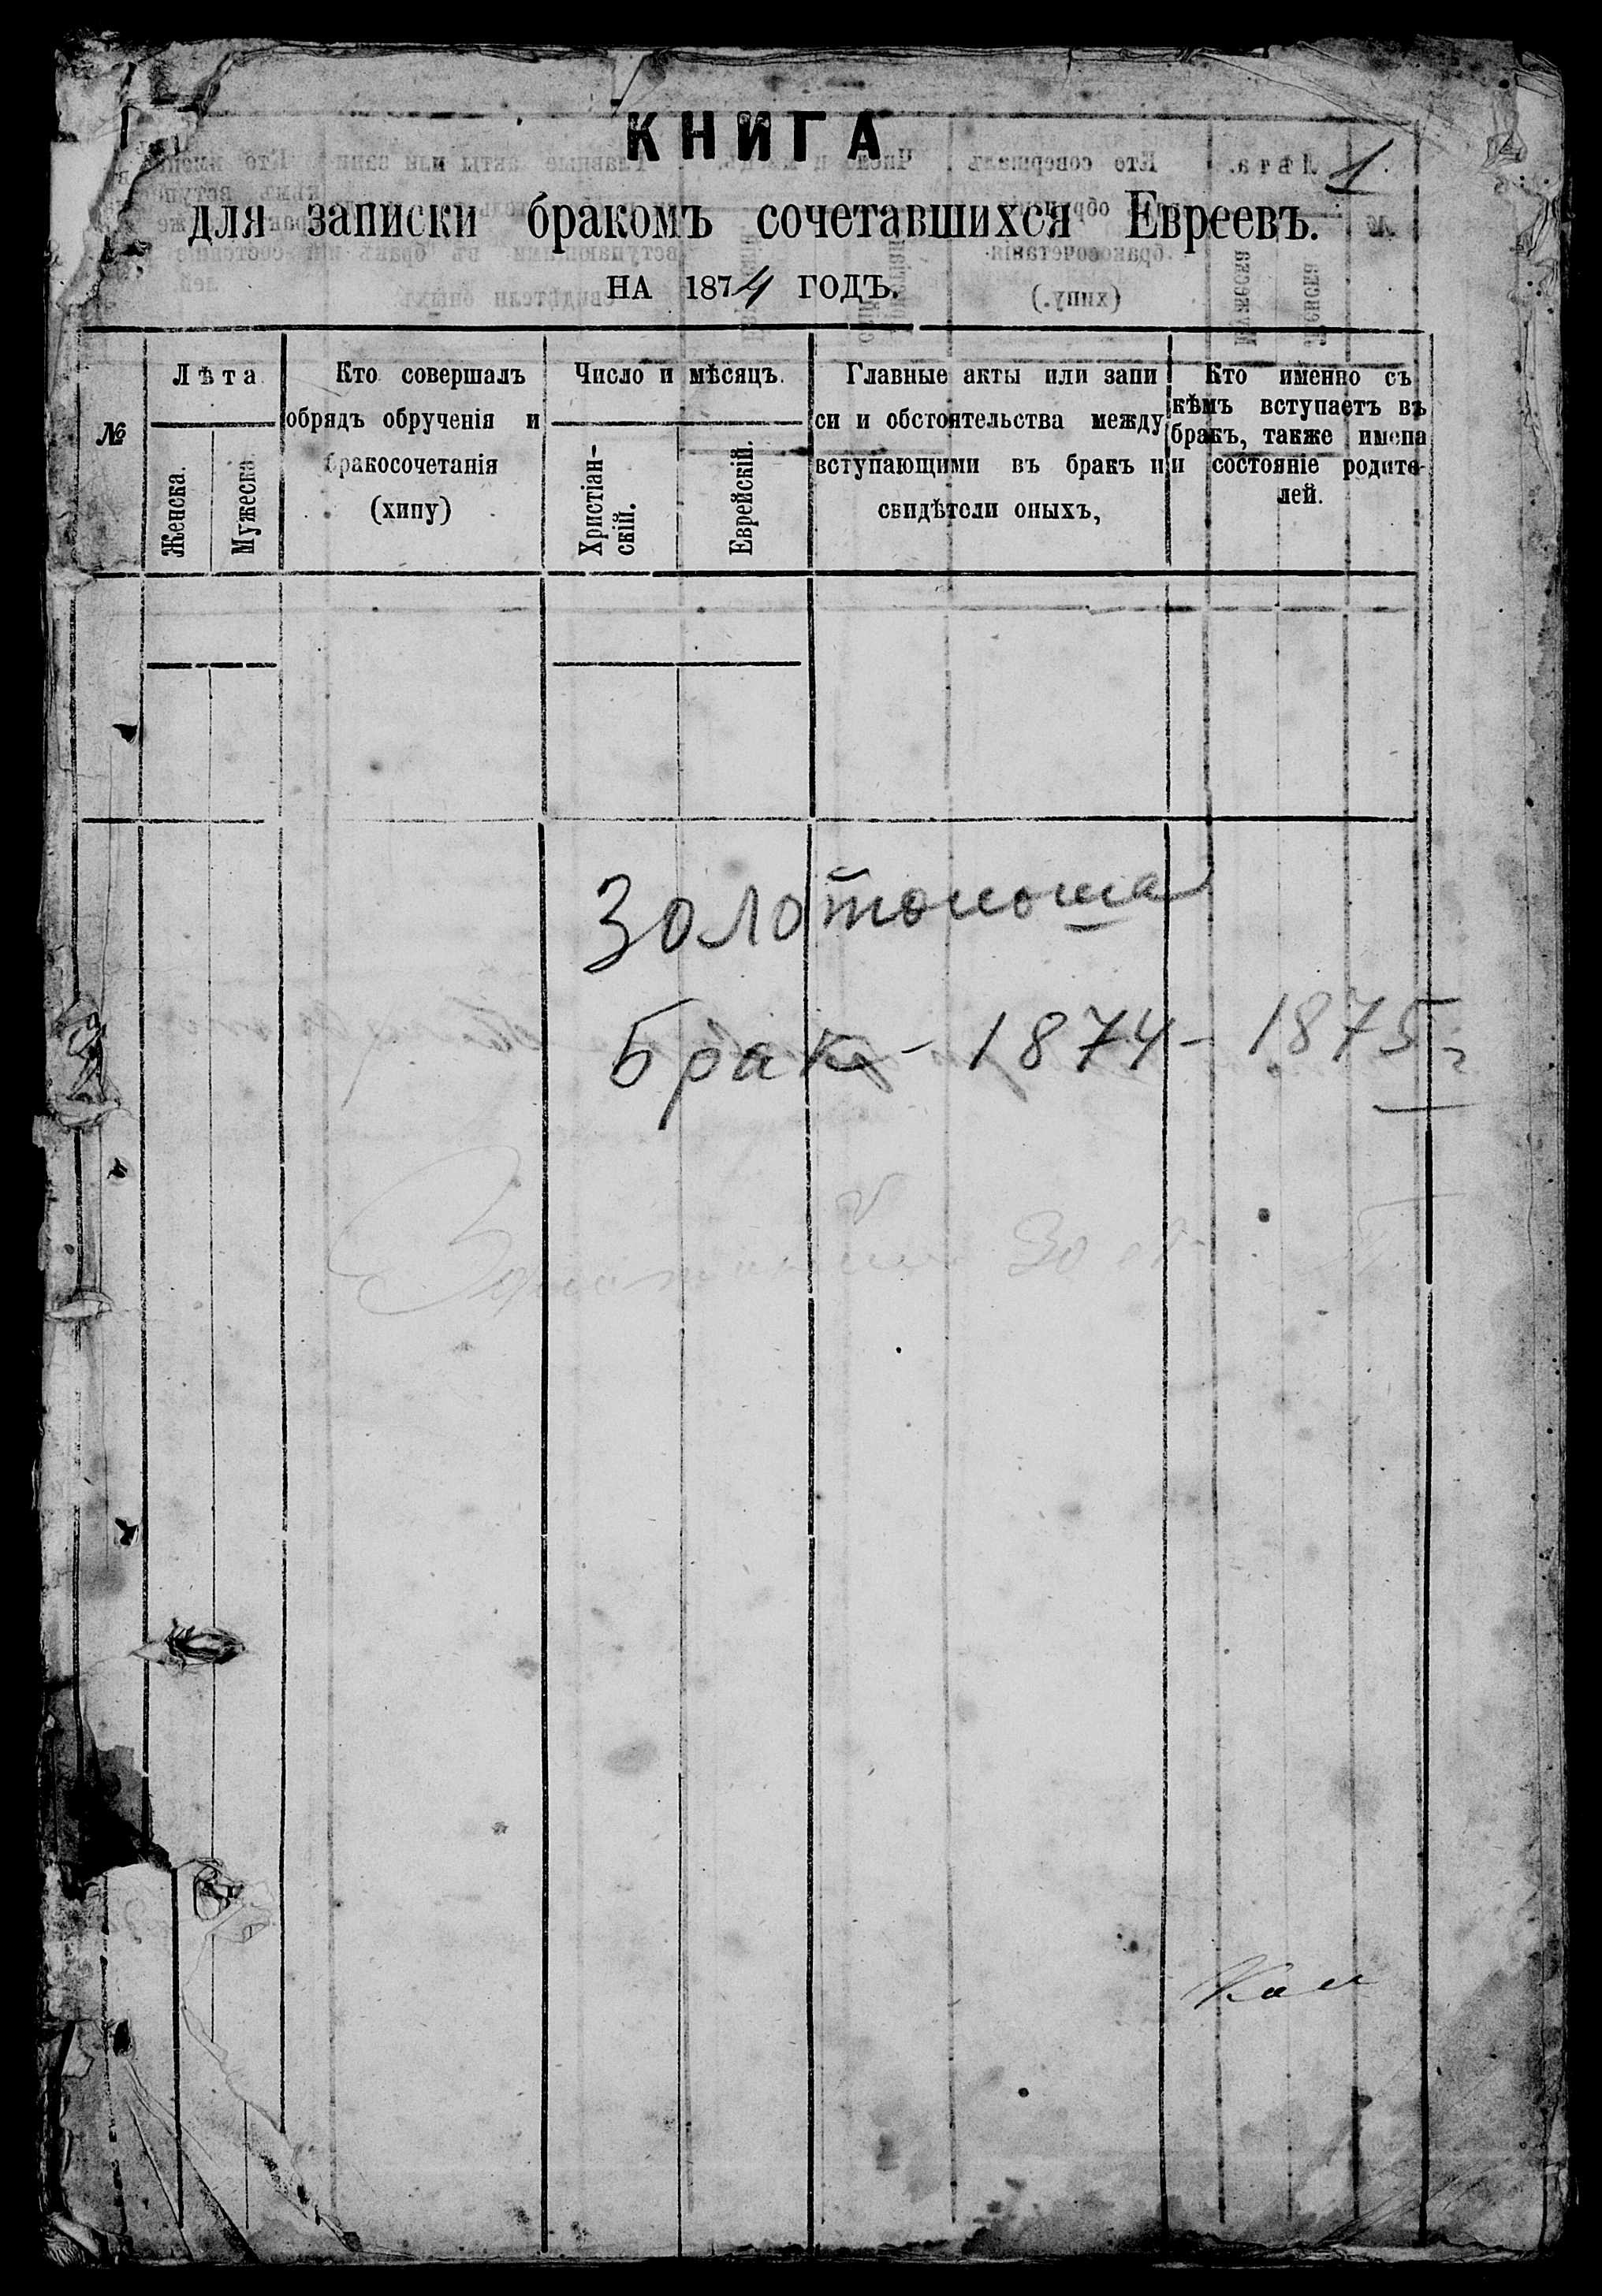 КНИГА
1
для записки бракомъ сочетавшихся Евреевъ.
НА 1874 ГОДЪ.
№
Лѣта
Женска.
Мужеска.
Кто совершалъ
обрядъ обрученія и
бракосочетанія
(хипу)
Число и мѣсяцъ.
Христіан-
скій.
Еврейскій.
Главные акты или запи
си и обстоятельства между
вступающими въ бракъ и
свидѣтели оныхъ,
Кто именно съ
кѣмъ вступаетъ въ
бракъ, также имена
и состояніе родите-
лей.
Золотоноша
Брак - 1874 - 1875 г